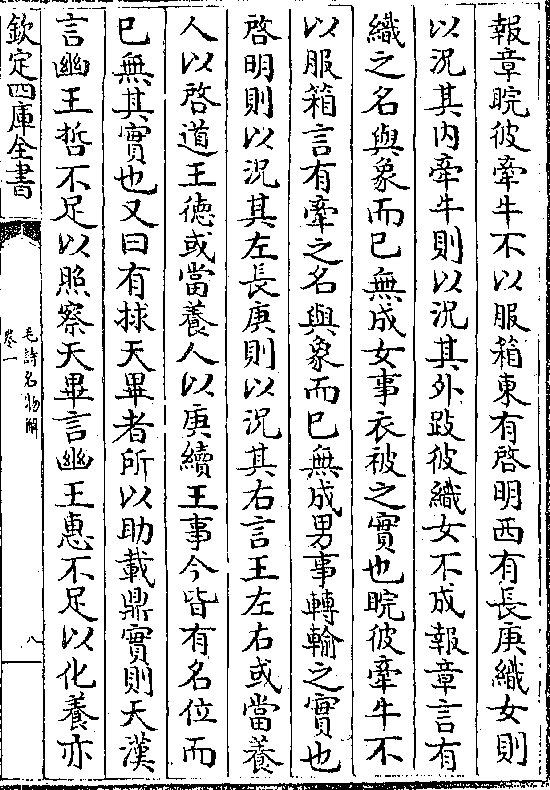 報章睆彼牽牛不以服箱東有啓明西有長庚織女則
以況其内牽牛則以況其外跂彼織女不成報章言有
織之名與象而已無成女事衣被之實也睆彼牽牛不
以服箱言有牽之名與象而已無成男事轉輸之實也
啓明則以況其左長庚則以況其右言王左右或當養
人以啓道王徳或當養人以庚續王事今皆有名位而
已無其實也又曰有捄天畢者所以助載鼎實則天漢
言幽王哲不足以照察天畢言幽王惠不足以化養亦
欽定四庫全書
毛詩名物解
卷一
八